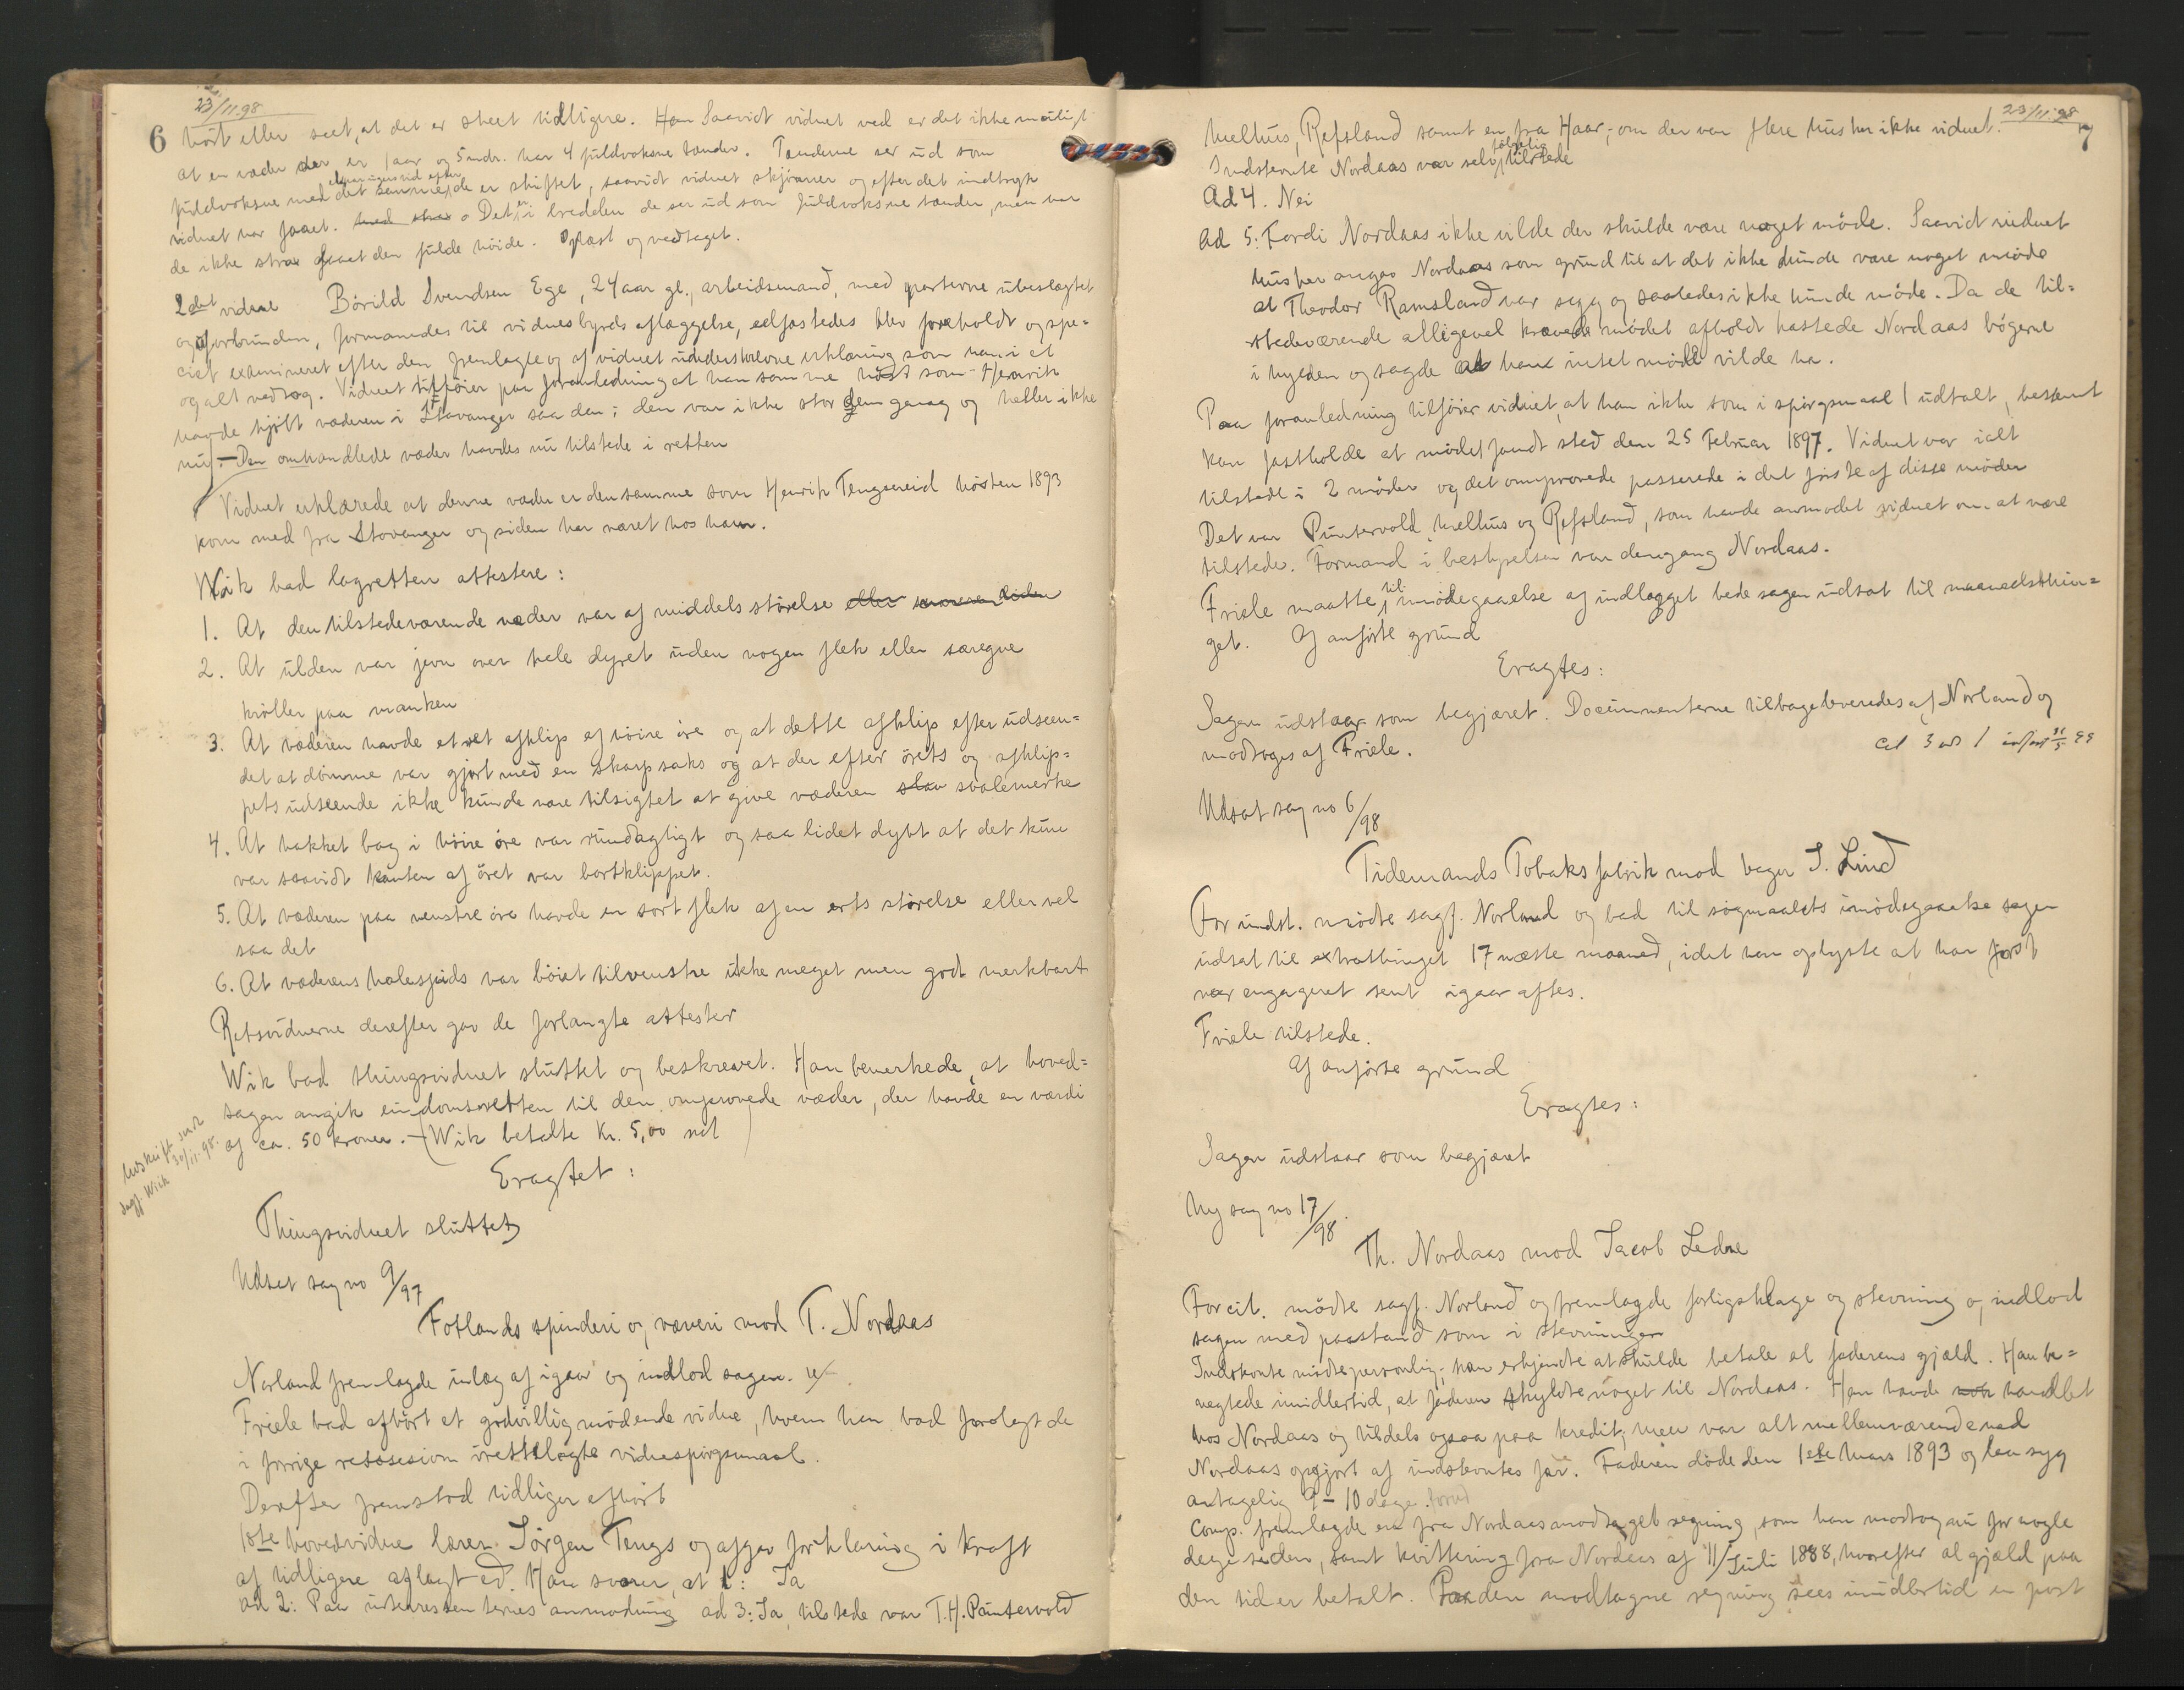 23/11.98
6
hört eller seet, at det er skeet tidligere. Saavidt vidnet ved er det ikke mœuligt
at en væder der er 1 aar og 5 mdr. har 4 fuldvoksne tænder. Tænderne ser ud som
fuldvoksne med det samme de er skiftet, saavidt vidnet skjönner og efter det indtryk
vidnet har faaet. Det er i bredden de ser ud som fuldvoksne tænder, men har
de ikke strax faaet den fulde höide. Oplæst og vedtaget.
2det vidne Börild Svendsen Ege, 24 aar gl., arbeidsmand, med parterne ubeslægtet
og uforbunden, formanedes til vidnesbyrds aflæggelse, edfæstedes blev foreholdt og spe=
cielt examineret efter den fremlagte og af vidnet underskrevne erklæring som han i et
og alt vedtog. Vidnet tilföier paa foranledning at han samme höst som Henrik
havde kjöbt væderen i Stavanger saa den; den var ikke stor dengang og heller ikke
nu. - Den omhandlede væder havdes nu tilstede i retten
Vidnet erklærede at denne væder er den samme som Henrik Tengsereid hösten 1893
kom med fra Stavanger og siden har været hos ham.
Wik bad lagretten attestere:
1. At den tilstedeværende væder var af middels störelse eller
2. At ulden var jevn over hele dyret uden nogen flek eller særegne
kröller paa manken
3. At væderen havde et ret afklip af höire öre og at dette afklip efter udseen=
det at dömme var gjort med en skarp saks og at der efter örets og afklip=
pets udseende ikke kunde være tilsigtet at give væderen svalemerke
4. At hakket bag i höire öre var rundagtigt og saa lidet dybt at det kun
var saavidt kanten af öret var bortklippet.
5. At væderen paa venstre öre havde en sort flek af en erts störelse eller vel
saa det
6. At væderens halespids var böiet tilvenstre ikke meget men godt merkbart
Retsvidnerne derefter gav de forlangte attester
Wik bad thingsvidnet sluttet og beskrevet. Han bemerkede, at hoved=
sagen angik eiendomsretten til den omprovede væder, der havde en værdi
af ca. 50 kroner. - (Wik betalte Kr. 5,00
Udskrift
30/11.98.
sagf. Wick
Eragtet:
Thingsvidnet sluttet
Udsat sag no 9/97
Fotlands spinderi og væveri mod T. Nordaas
Norland fremlagde inlæg af igaar og indlod sagen.
Friele bad afhört et godvillig mödende vidne, hvem han bad forelagt de
i forrige retssession iretttelagte vidnespörgsmaal.
Derefter fremstod tidligere afhört
1ste hovedvidne lærer Jörgen Tengs og afgav forklaring i kraft
af tidligere aflagt ed. Han svarer, at 1: Ja
ad 2: Paa interessenternes anmodning ad 3: Ja, tilstede var T.H. Puntervold
23/11.98
7
Melhus, Refsland samt en fra Haar; om der var flere husker ikke vidnet.
Indstevnte Nordaas var selvfölgelig tilstede
Ad 4. Nei
Ad 5: Fordi Nordaas ikke vilde der skulde være noget möde. Saavidt vidnet
husker angav Nordaas som grund til at det ikke kunde være noget möde
at Theodor Ramsland var syg og saaledes ikke kunde möde. Da de til=
stedeværende alligevel krævede mödet afholdt kastede Nordaas bögerne
i hylden og sagde at han intet möde vilde ha.
Paa foranledning tilföier vidnet, at han ikke som i spörgsmaal 1 udtalt, bestemt
kan fastholde at mödet fandt sted den 25 Februar 1897. Vidnet var ialt
tilstede i 2 möder og det omprovede passerede i det förste af disse möder
Det var Puntervold, Melhus og Refsland, som havde anmodet vidnet om at være
tilstede. Formand i bestyrelsen var dengang Nordaas.
Friele maatte til imödegaaelse af indlægget bede sagen udsat til maanedsthin=
get. Af anförte grund
Eragtes:
Sagen udstaar som begjæret. Documenterne tilbageleveredes af Norland og
modtoges af Friele.
Udsat sag no 6/98
Tidemands Tobaksfabrik mod bager J. Lind
For indst. mödte sagf. Norland og bad til sögmaalets imödegaaelse sagen
udsat til extrathinget 17 næste maaned, idet han oplyste at han först
var engageret sent igaar aftes.
Friele tilstede.
Af anförte grund
Eragtes:
Sagen udstaar som begjæret
Ny sag no 17/98.
Th. Nordaas mod Jacob Ledne
For cit. mödte sagf. Norland og fremlagde forligsklage og stevning og indlod
sagen med paastand som i stevningen
Indstevnte mödte personlig; han erkjendte at skulde betale al faderens gjæld. Han be=
negtede imidlertid, at faderen skyldte noget til Nordaas. Han havde handlet
hos Nordaas og tildels ogsaa paa kredit, men var alt mellemværende med
Nordaas opgjort af indstevntes far. Faderen döde den 1ste Mars 1893 og laa syg
antagelig 9 - 10 dage forud
Comp. fremlagde en fra Nordaas modtaget regning, som han modtog nu for nogle
dage siden, samt kvittering fra Nordaas af 11/Juli 1888, hvorefter al gjæld paa
den tid er betalt. Paa den modtagne regning sees imidlertid en post